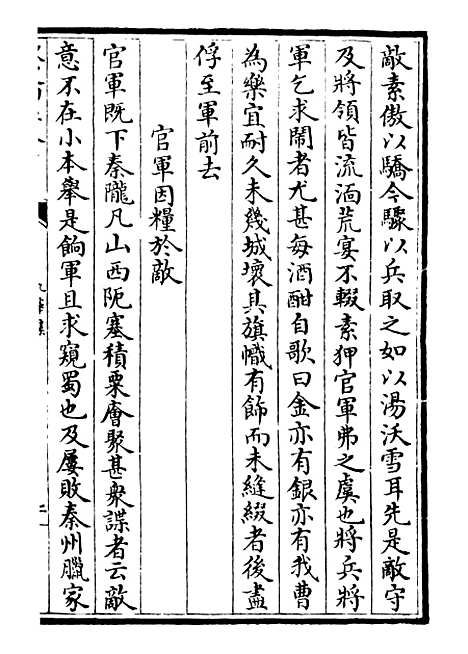 敵素傲以驕今驟以兵取之如以湯沃雪耳先是敵守
及將領皆流湎荒宴不輟素狎官軍弗之虞也將兵將
軍乞求鬧者尤甚每酒酣自歌曰金亦有銀亦有我曹
為樂宜耐久未幾城壞其旗幟有飾而未縫綴者後盡
俘至軍前去
官軍因糧於敵
官軍既下秦隴凡山西阨塞積粟㕔聚甚衆諜者云敵
意不在小本舉是餉軍且求窺蜀也及屢敗秦州臘家